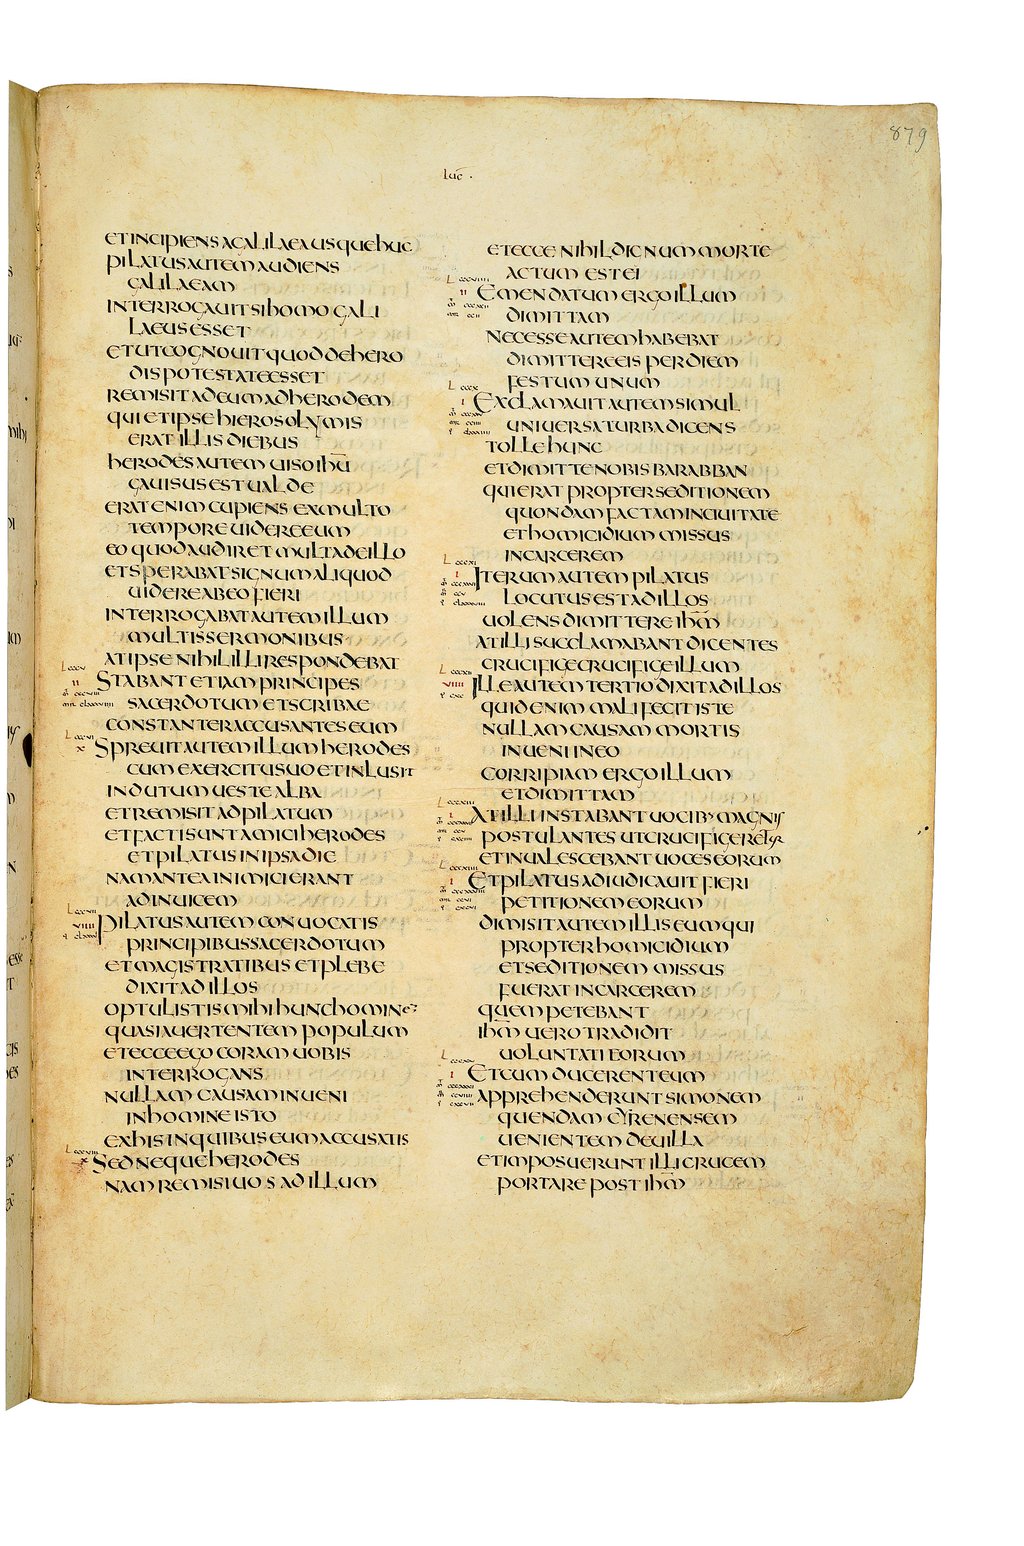 879
luc .
ET INCIPIENS A GALILAEA USQUE HUC
PILATUS AUTEM AUDIENS
GALILAEAM
INTERROGAUIT SI HOMO GALI
LAEUS ESSET
ET UT COGNOUIT QUOD DE HERO
DIS POTESTATE ESSET
REMISIT AD EUM AD HERODEM
QUI ET IPSE HIEROSOLYMIS
ERAT ILLIS DIEBUS
HERODES AUTEM UISO IHU̅
GAUISUS EST UALDE
ERAT ENIM CUPIENS EX MULTO
TEMPORE UIDERE EUM
EO QUOD AUDIRET MULTA DE ILLO
ET SPERABAT SIGNUM ALIQUOD
UIDERE AB EO FIERI
INTERROGABAT AUTEM ILLUM
MULTIS SERMONIBUS
AT IPSE NIHIL ILLI RESPONDEBAT
STABANT ETIAM PRINCIPES
SACERDOTUM ET SCRIBAE
CONSTANTER ACCUSANTES EUM
SPREUIT AUTEM ILLUM HERODES
CUM EXERCITU SUO ET INLUSIT
INDUTUM UESTE ALBA
ET REMISIT AD PILATUM
ET FACTI SUNT AMICI HERODES
ET PILATUS IN IPSA DIE
NAM ANTEA INIMICI ERANT
AD INUICEM
PILATUS AUTEM CONUOCATIS
PRINCIPIBUS SACERDOTUM
ET MAGISTRATIBUS ET PLEBE
DIXIT AD ILLOS
OPTULISTIS MIHI HUNC HOMINE
QUASI AUERTENTEM POPULUM
ET ECCE EGO CORAM UOBIS
INTERROGANS
NULLAM CAUSAM INUENI
IN HOMINE ISTO
EX HIS IN QUIBUS EUM ACCUSATIS
SED NEQUE HERODES
NAM REMISI UOS AD ILLUM
ET ECCE NIHIL DIGNUM MORTE
ACTUM EST EI
EMENDATUM ERGO ILLUM
DIMITTAM
NECESSE AUTEM HABEBAT
DIMITTERE EIS PER DIEM
FESTUM UNUM
EXCLAMAUIT AUTEM SIMUL
UNIUERSA TURBA DICENS
TOLLE HUNC
ET DIMITTE NOBIS BARABBAN
QUI ERAT PROPTER SEDITIONEM
QUONDAM FACTAM IN CIUITATE
ET HOMICIDIUM MISSUS
IN CARCEREM
ITERUM AUTEM PILATUS
LOCUTUS EST AD ILLOS
UOLENS DIMITTERE IHM̅
AT ILLI SUCCLAMABANT DICENTES
CRUCIFIGE CRUCIFIGE ILLUM
ILLE AUTEM TERTIO DIXIT AD ILLOS
QUID ENIM MALI FECIT ISTE
NULLAM CAUSAM MORTIS
INUENI IN EO
CORRIPIAM ERGO ILLUM
ET DIMITTAM
AT ILLI INSTABANT UOCIB; MAGNIS
POSTULANTES UT CRUCIFIGERETUR
ET INUALESCEBANT UOCES EORUM
ET PILATUS ADIUDICAUIT FIERI
PETITIONEM EORUM
DIMISIT AUTEM ILLIS EUM QUI
PROPTER HOMICIDIUM
ET SEDITIONEM MISSUS
FUERAT IN CARCEREM
QUEM PETEBANT
IHM̅ UERO TRADIDIT
UOLUNTATI EORUM
ET CUM DUCERENT EUM
APPREHENDERUNT SIMONEM
QUENDAM CYRENENSEM
UENIENTEM DE UILLA
ET IMPOSUERUNT ILLI CRUCEM
PORTARE POST IHM̅